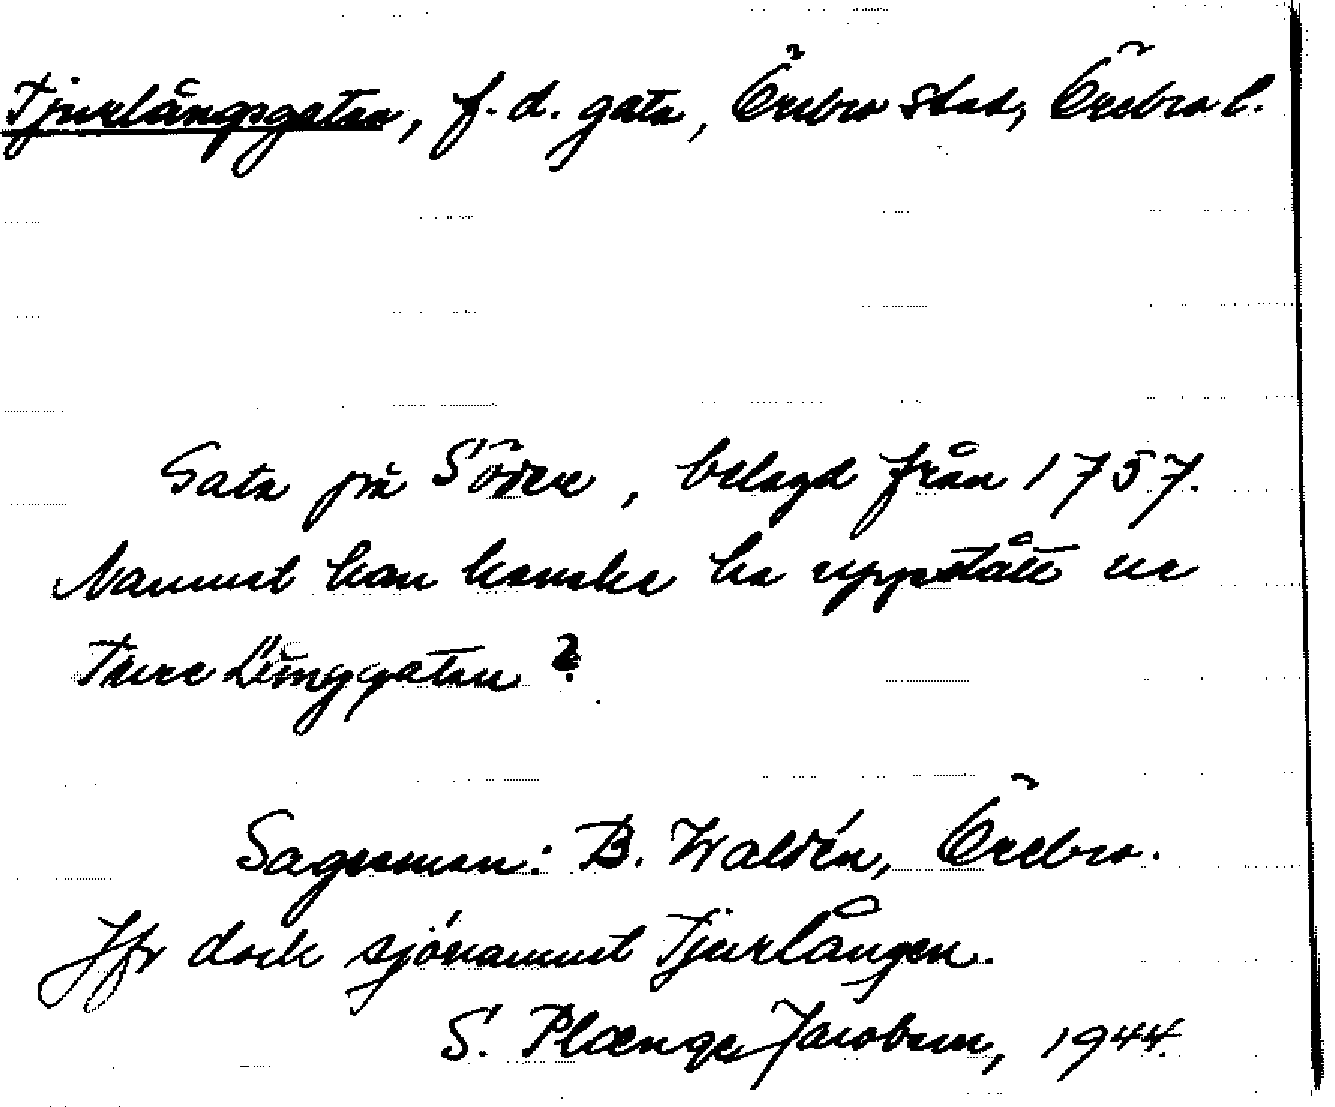 Tjurlångsgatan, f. d. gata, Örebro stad, Örebro l.
Gata på Söder, belagd från 1757.
Namnet kan kanske ha uppstått ur
Ture Långgatan?
Sagesman: B. Waldén, Örebro.
Jfr dock sjönamnet Tjurlången.
S. Plænge Jacobson, 1944.